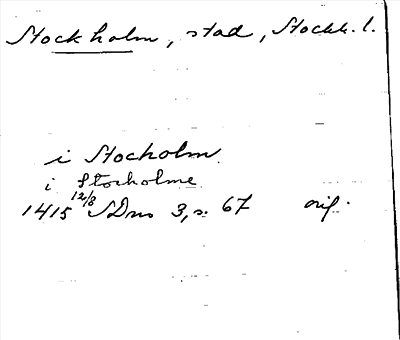 Stockholm, stad, Stockh. l.
i Stocholm.
i Stocholme
1415 12/8 SDns 3, s. 67 orig.